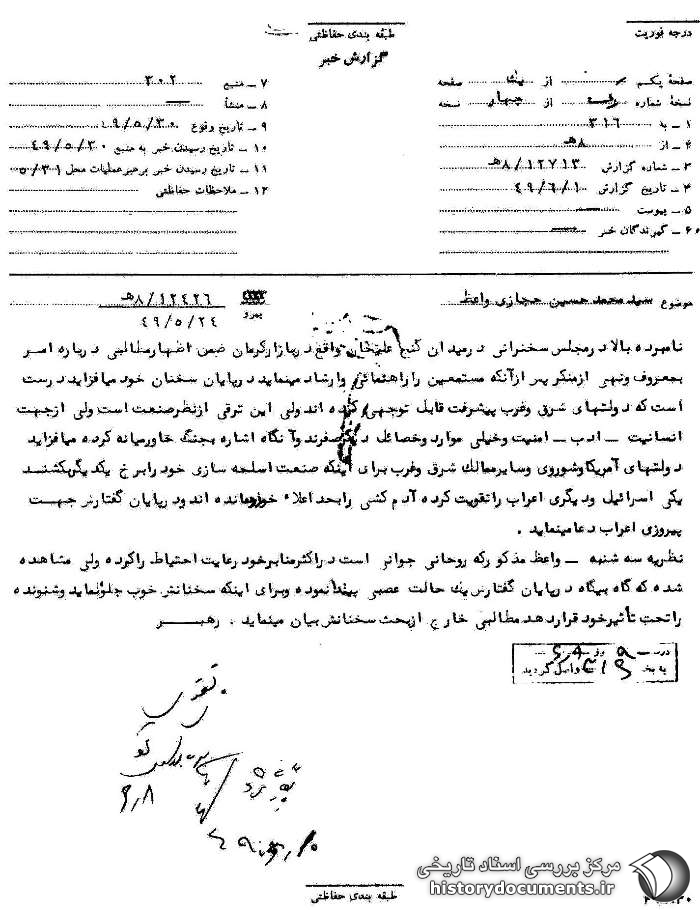 درجه فوریت
طبقه بندی حفاظتی
گزارش خبر
صفحهٔ یکم از صفحه
نسخهٔ شماره از چهار نسخه
۱ـ به ۳۱۶
۲ـ از ۸هـ
۳ـ شماره گزارش ۸/۱۲۷۱۳هـ
۴ـ تاریخ گزارش ۴۹/۶/۱
۵ـ پیوست
۶ـ گیرندگان خبر
۷ـ منبع ۳۰۲
۸ـ منشأ
۹ـ تاریخ وقوع ۴۹/۵/۳۰
۱۰ـ تاریخ رسیدن خبر به منبع ۴۹/۵/۳۰
۱۱ـ تاریخ رسیدن خبر برهبر عملیات محل ۵/۳۱
۱۲ـ ملاحظات حفاظتی
موضوع سید محمد حسین حجازی واعظ
پیرو ۸/۱۲۴۲۶هـ
۴۹/۵/۲۴
نامبرده بالا در مجلس سخنرانی در میدان گنج علیخان واقع در بازار کرمان ضمن اظهار مطالبی درباره امر
بمعروف ونهی از منکر پس از آنکه مستمعین را راهنمائی وارشاد مینماید در پایان سخنان خود میافزاید درست
است که دولتهای شرق وغرب پیشرفت قابل توجهی کرده اند ولی این ترقی از نظر صنعت است ولی از جهت
انسانیت ـ ادب ـ امنیت وخیلی موارد وخصائل در صفرند وآنگاه اشاره بجنگ خاورمیانه کرده میافزاید
دولتهای آمریکا وشوروی وسایر ممالک شرق وغرب برای اینکه صنعت اسلحه سازی خود را برخ یکدیگر بکشند
یکی اسرائیل ودیگری اعراب را تقویت کرده آدم کشی را بحد اعلاء خود رسانده اند ودر پایان گفتارش جهت
پیروزی اعراب دعا مینماید .
نظریه سه شنبه ـ واعظ مذکور که روحانی جوانی است در اکثر منابر خود رعایت احتیاط را کرده ولی مشاهده
شده که گاه بیگاه در پایان گفتارش یک حالت عصبی پیدا نموده وبرای اینکه سخنانش خوب جلوه نماید وشنونده
را تحت تأثیر خود قرار دهد مطالبی خارج از بحث سخنانش بیان مینماید . رهبر
واصل گردید
طبقه بندی حفاظتی
مرکز بررسی اسناد تاریخی
historydocuments.ir